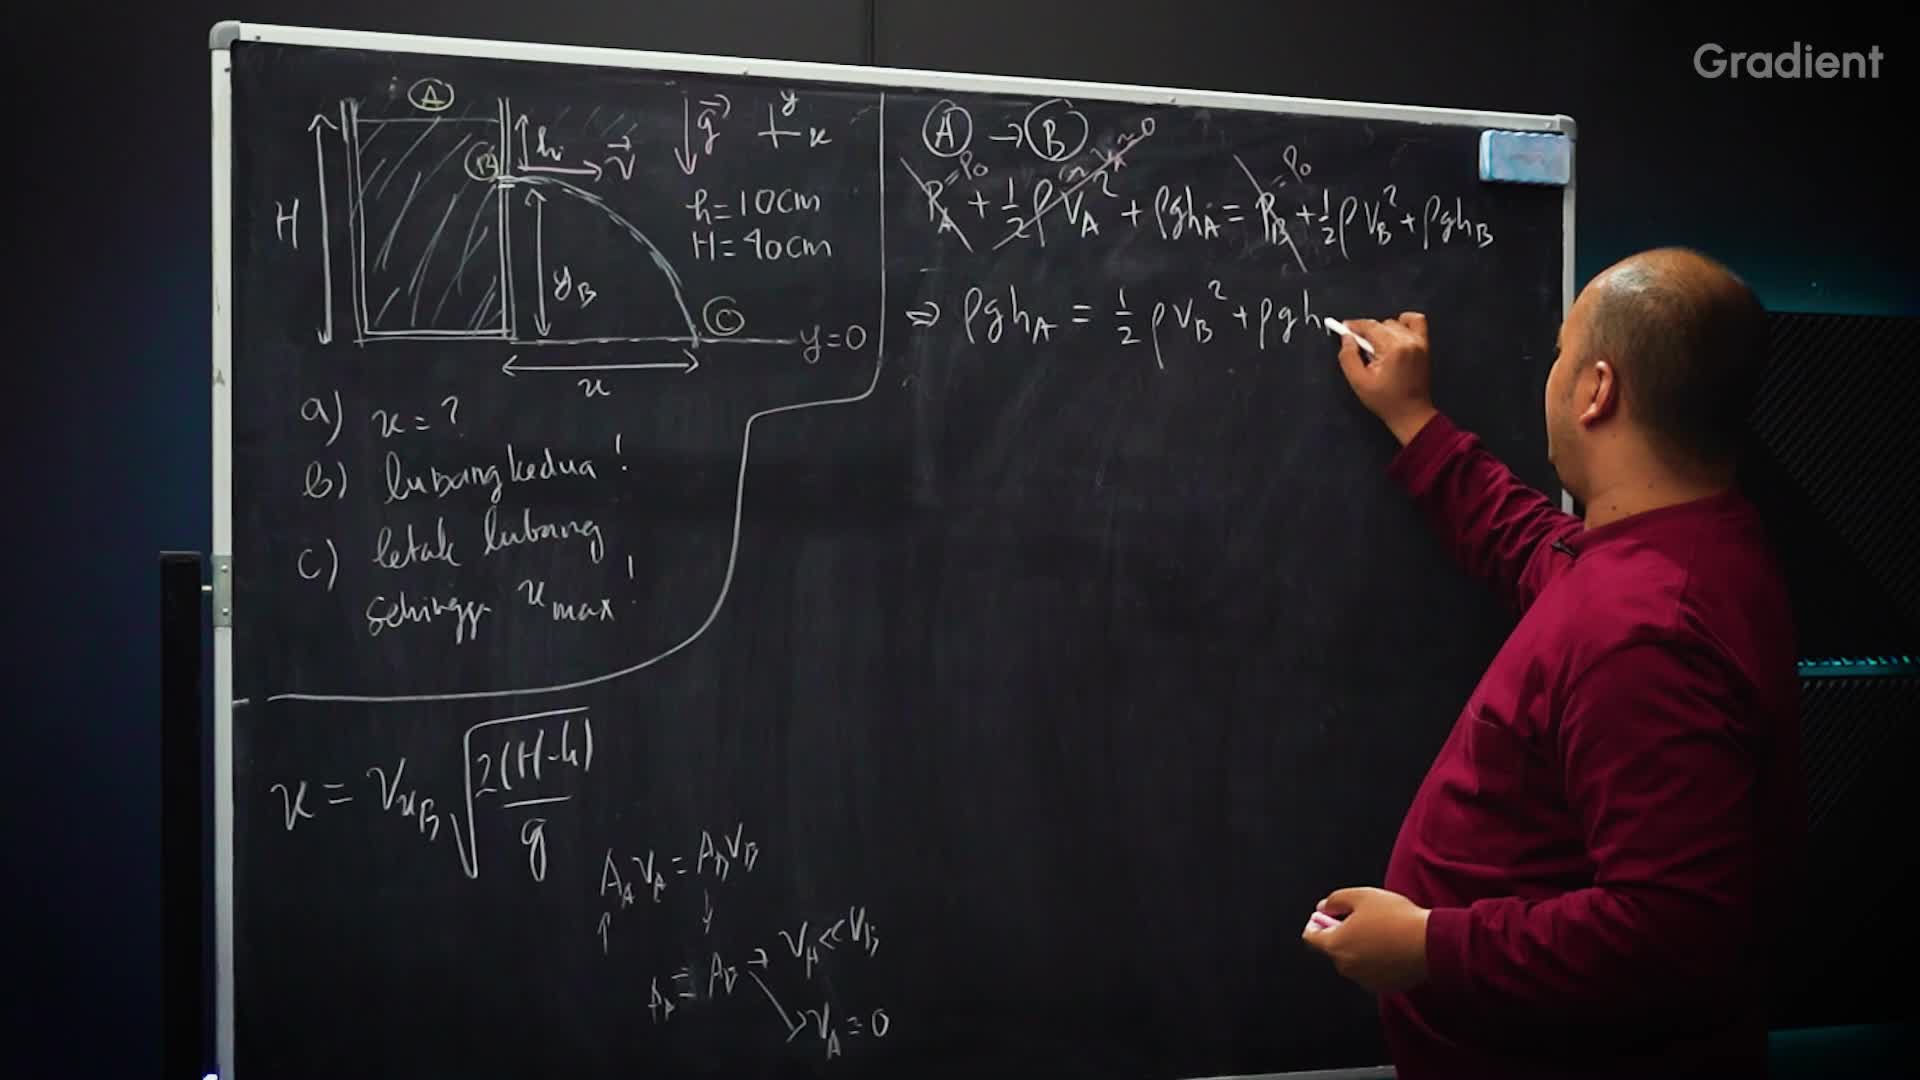 Gradient
A
B
H
h
\vec{v}
\vec{g}
y
x
h = 10 cm
H = 40 cm
y_B
C
y = 0
x
a) x = ?
b) lubang kedua !
c) letak lubang
sehingga x_max !
x = v_{xB} \sqrt{\frac{2(H-h)}{g}}
A_A v_A = A_B v_B
→ v_A << v_B
v_A = 0
A → B
= P_0
≈ v_A ≈ 0
= P_0
P_A + ½ ρ v_A² + ρ g h_A = P_B + ½ ρ v_B² + ρ g h_B
⇒ ρ g h_A = ½ ρ v_B² + ρ g h